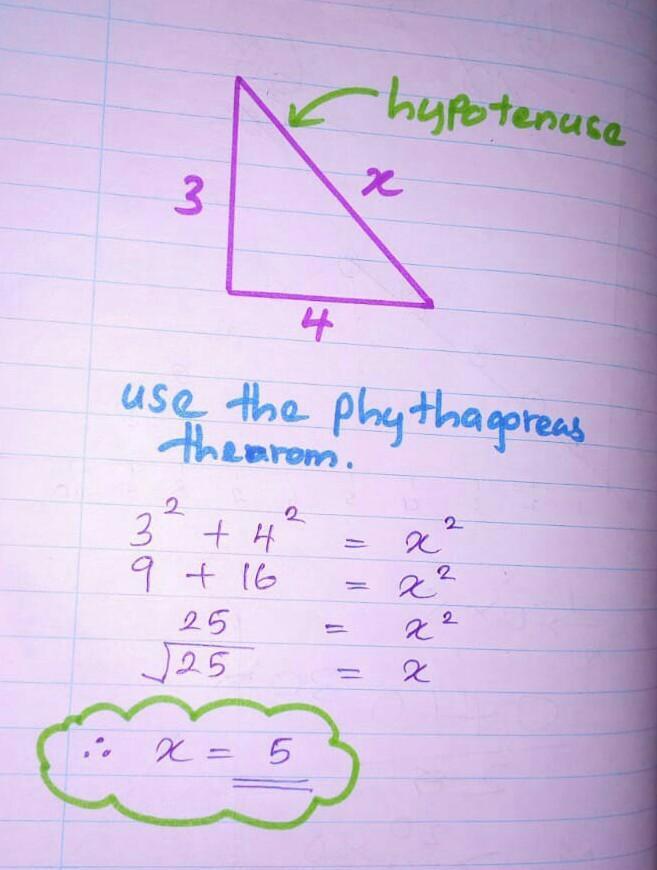 hypotenuse
3
x
4
use the phythagoreas
thearom.
3² + 4² = x²
9 + 16 = x²
25 = x²
√25 = x
∴ x = 5